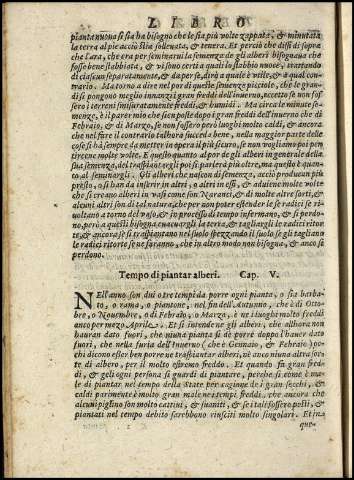 LIBRO
pianta nuoua si sia ha bisogno che le sia più volte zappata, & minutata
la terra al pie acciò stia solleuata, & tenera. Et perciò che dissi di sopra
che l'ara, che era per seminarui la semenza de gli alberi bisognaua che
fosse bene stabbiata, & vi sono certi a quali lo stabbio nuoce, trattando
di ciascun separatamente, & da per se, dirò a quale è vtile, & a qual con-
trario. Ma torno a dire nel por di queste semenze picciole, che le gran-
di si pongono meglio innanzi i gran freddi dell'inuerno, eccetto se non fos-
sero i terreni smisuratamente freddi, & humidi. Ma circa le minute se-
menze, è il parer mio che sien poste dapoi i gran freddi dell'inuerno che di
Febraio, & di Marzo, se non fossero però luoghi molto caldi, & ancora
che nel fare il contrario talhora succeda bene, nella maggior parte delle
cose si hà sempre da metter in opera il più sicuro, se non vogliamo poi pen-
tircene molte volte. E questo quanto al por de gli alberi in generale dalla
sua semenza, del trasporli assai cose si potria più oltre, ma questo è quan-
to al seminargli. Gli alberi che nascon di semenza, acciò producan più
presto, o si han da inserir in altri, o altri in essi, & aduiene molte volte
che si creano alberi in vasi come son Naranci, & di molte altre sorti, &
alcuni altri son di tal natura che per non poter estender le se radici se ri-
uoltano a torno del vaso, & in processo di tempo infermano, & si perdo-
no, però a questi bisogna cuacuargli la terra, & tagliargli le radici ritor
te, & ancora se si traspiantano nel suolo spezzando il suolo se gli tagliano
le radici ritorte se ne saranno, che in altro modo non bisogna, & anco si
perdono.
Tempo di piantar alberi. Cap. V.
NEll'anno son dui otre tempi da porre ogni pianta, o sia barba-
to, o ramo, o piantone, nel fin dell'Autunno, che è di Otto-
bre, o Nouembre, o di Febraio, o Marzo, è ne i luoghi molto freddi
anco per mezo Aprile. Et si intende ne gli alberi, che alhora non
hauran dato fuori, che niuna pianta si dè porre dapoi l'hauer dato
fuori, che nella furia dell'Inuerno (che è Gennaio, & Febraio) po-
chi dicono esser ben porre ne traspiantar alberi, nè anco niuna altra sor-
te di albero, per il molto estremo freddo. Et quando fa gran fred-
di, & geli ogni persona si guardi di piantare, perche si come è ma-
le di piantar nel tempo della State per cagione de i gran secchi, &
caldi parimente è molto gran male ne i freddi, che ancora che
alcuni piglino son molto cattiui, & suaniti, & se ital fossero posti, &
piantati nel tempo debito sarebbono riusciti molto singolari. Et in
que-